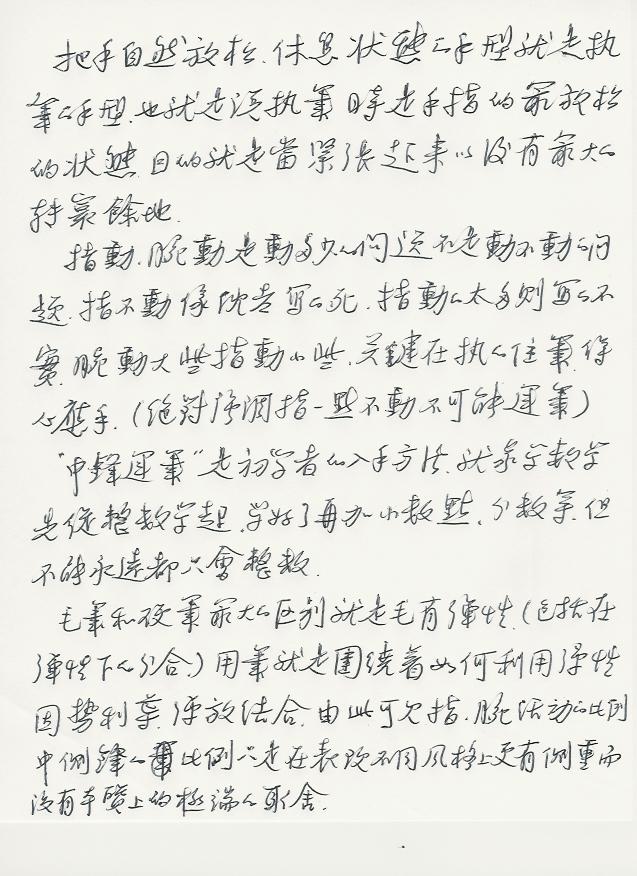 把手自然放松.休息状態的手型就是执
筆的手型.也就是没执筆時是手指的最放松
的状態.目的就是當緊張起来以後有最大的
转寰餘地.
指動.腕動是動多少的问题不是動不動的问
题.指不動像沈尹写的死.指動的太多则写的不
實.腕動大些指動小些.关鍵在执的住筆.得
心應手.(絕對强调指一點不動不可能運筆)
"中鋒運筆"是初学者的入手方法.就象学数学
先從整数学起.学好了再加小数點.分数等.但
不能永遠都只會整数.
毛筆和硬筆最大的区别就是毛有彈性.(包括在
彈性下的分合.)用筆就是圍繞着如何利用彈性
因勢利導.
收放结合.由此可见指.腕活动的比例
中侧鋒的筆比例只是在表现不同風格上更有侧重而
没有本質上的極端的取舍.